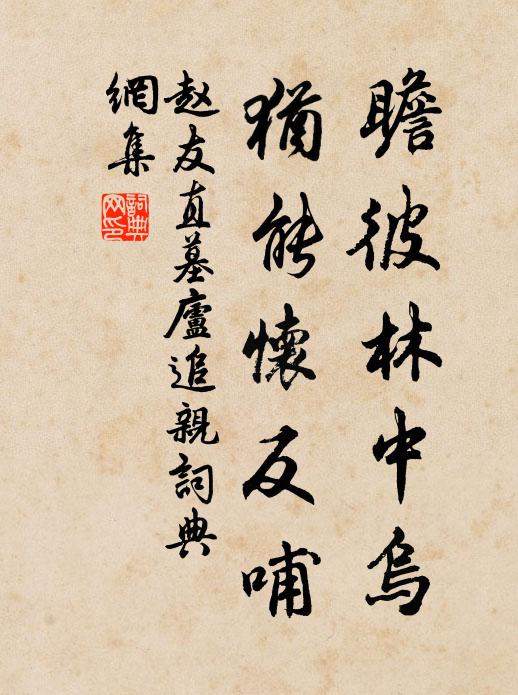 瞻彼林中烏
猶能懷反哺
赵友直墓廬追親詞典
網集
詞典
网印